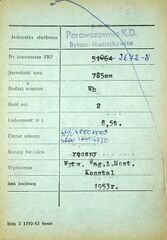 Jednostka służbowa Parowozownia K.D.
Bytom-Maciejkowice
Nr inwentarza PKP 51064 2672-8
Szerokość toru 785mm
Rodzaj wagonu Wh
Ilość osi 2
Ładowność w t. 8,5t.
Ciężar własny
Rodzaj hamulca ręczny
Wytwórnia Wytw. Wag.i Most.
Konstal
Rok budowy 1953r.